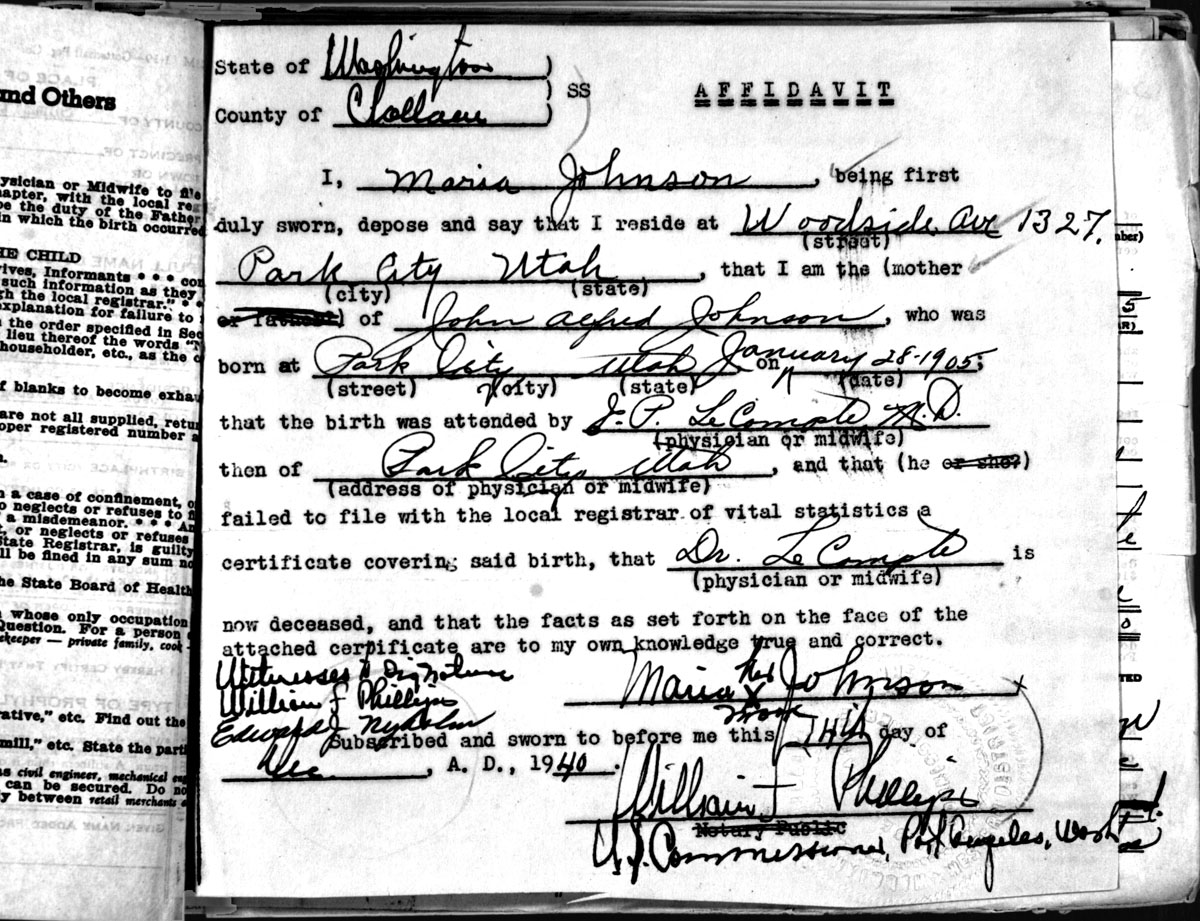 and Others
ysician or Midwife to file
hapter, with the local reg
be the duty of the Father
in which the birth occurred
HE CHILD
rives, Informants * * * con
such information as they
gh the local registrar." * *
explanation for failure to
n the order specified in Sec
lieu thereof the words "T
householder, etc., as the c
f blanks to become exhau
are not all supplied, retu
oper registered number a
n a case of confinement, o
o neglects or refuses to fi
a misdemeanor. * * * An
, or neglects or refuses
State Registrar, is guilty
ll be fined in any sum no
he State Board of Health
whose only occupation
Question. For a person
ekeeper — private family, cook
rative," etc. Find out the
mill," etc. State the parti
as civil engineer, mechanical eng
can be secured. Do no
y between retail merchants
State of Washington )
) SS AFFIDAVIT
County of Clallam )
I, Maria Johnson, being first
duly sworn, depose and say that I reside at Woodside Ave 1327.
(street)
Park City Utah, that I am the (mother
(city) (state)
or father) of John Alfred Johnson, who was
born at Park City Utah on January 28-1905;
(street) (city) (state) (date)
that the birth was attended by E. P. LeCompte M.D.
(physician or midwife)
then of Park City Utah, and that (he or she?)
(address of physician or midwife)
failed to file with the local registrar of vital statistics a
certificate covering said birth, that Dr. LeCompte is
(physician or midwife)
now deceased, and that the facts as set forth on the face of the
attached certificate are to my own knowledge true and correct.
Witnesses to Signature
William J Phillips
Edward J
Maria her X mark Johnson
Subscribed and sworn to before me this 14th day of
Dec, A. D., 1940.
William J Phillips
Notary Public
U.S. Commissioner, Port Angeles, Wash